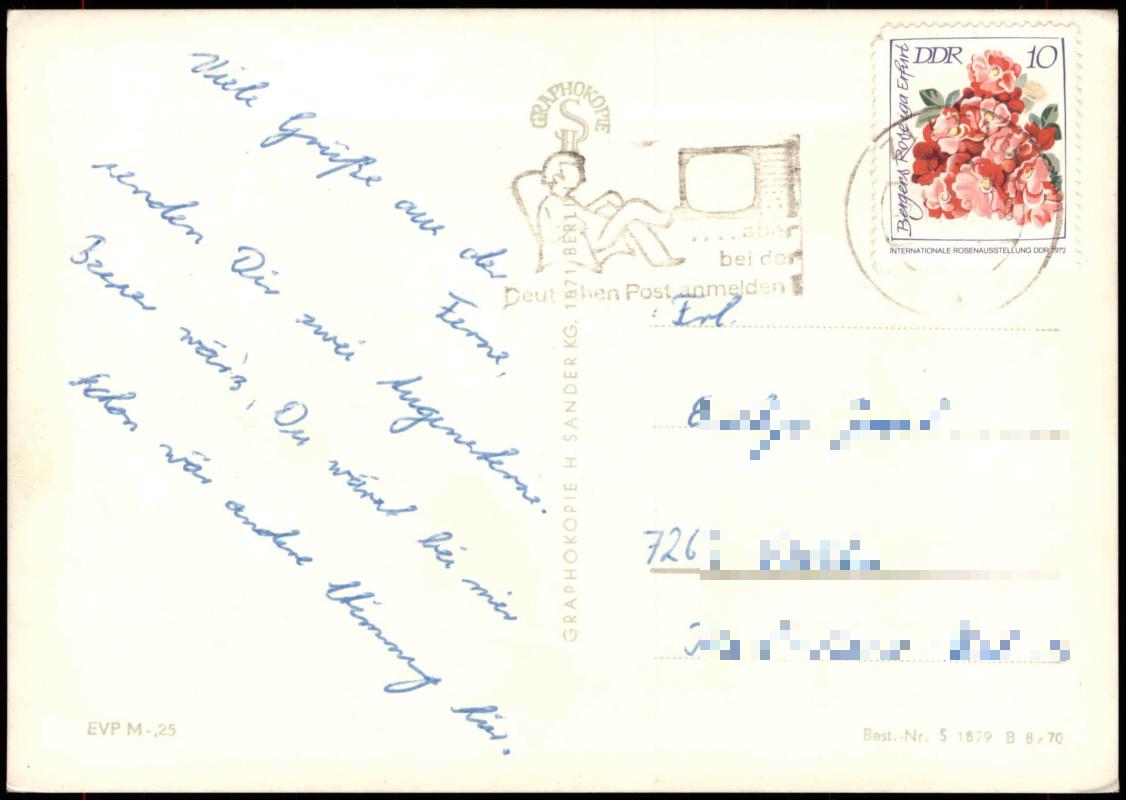 Viele Grüße aus der Ferne,
senden Dir zwei Augensterne.
Besser wär's, Du wärst bei mir
schon wär andere Stimmung hier.
EVP M -,25
GRAPHOKOPIE H. SANDER KG, 1071 BERL
GRAPHOKOPIE
S
H
.... aber
bei der
Deutschen Post anmelden
DDR 10
Bergers Rose Erfurt
INTERNATIONALE ROSENAUSSTELLUNG DDR 1972
Frl.
726
Best.-Nr. S 1879 B 8/70